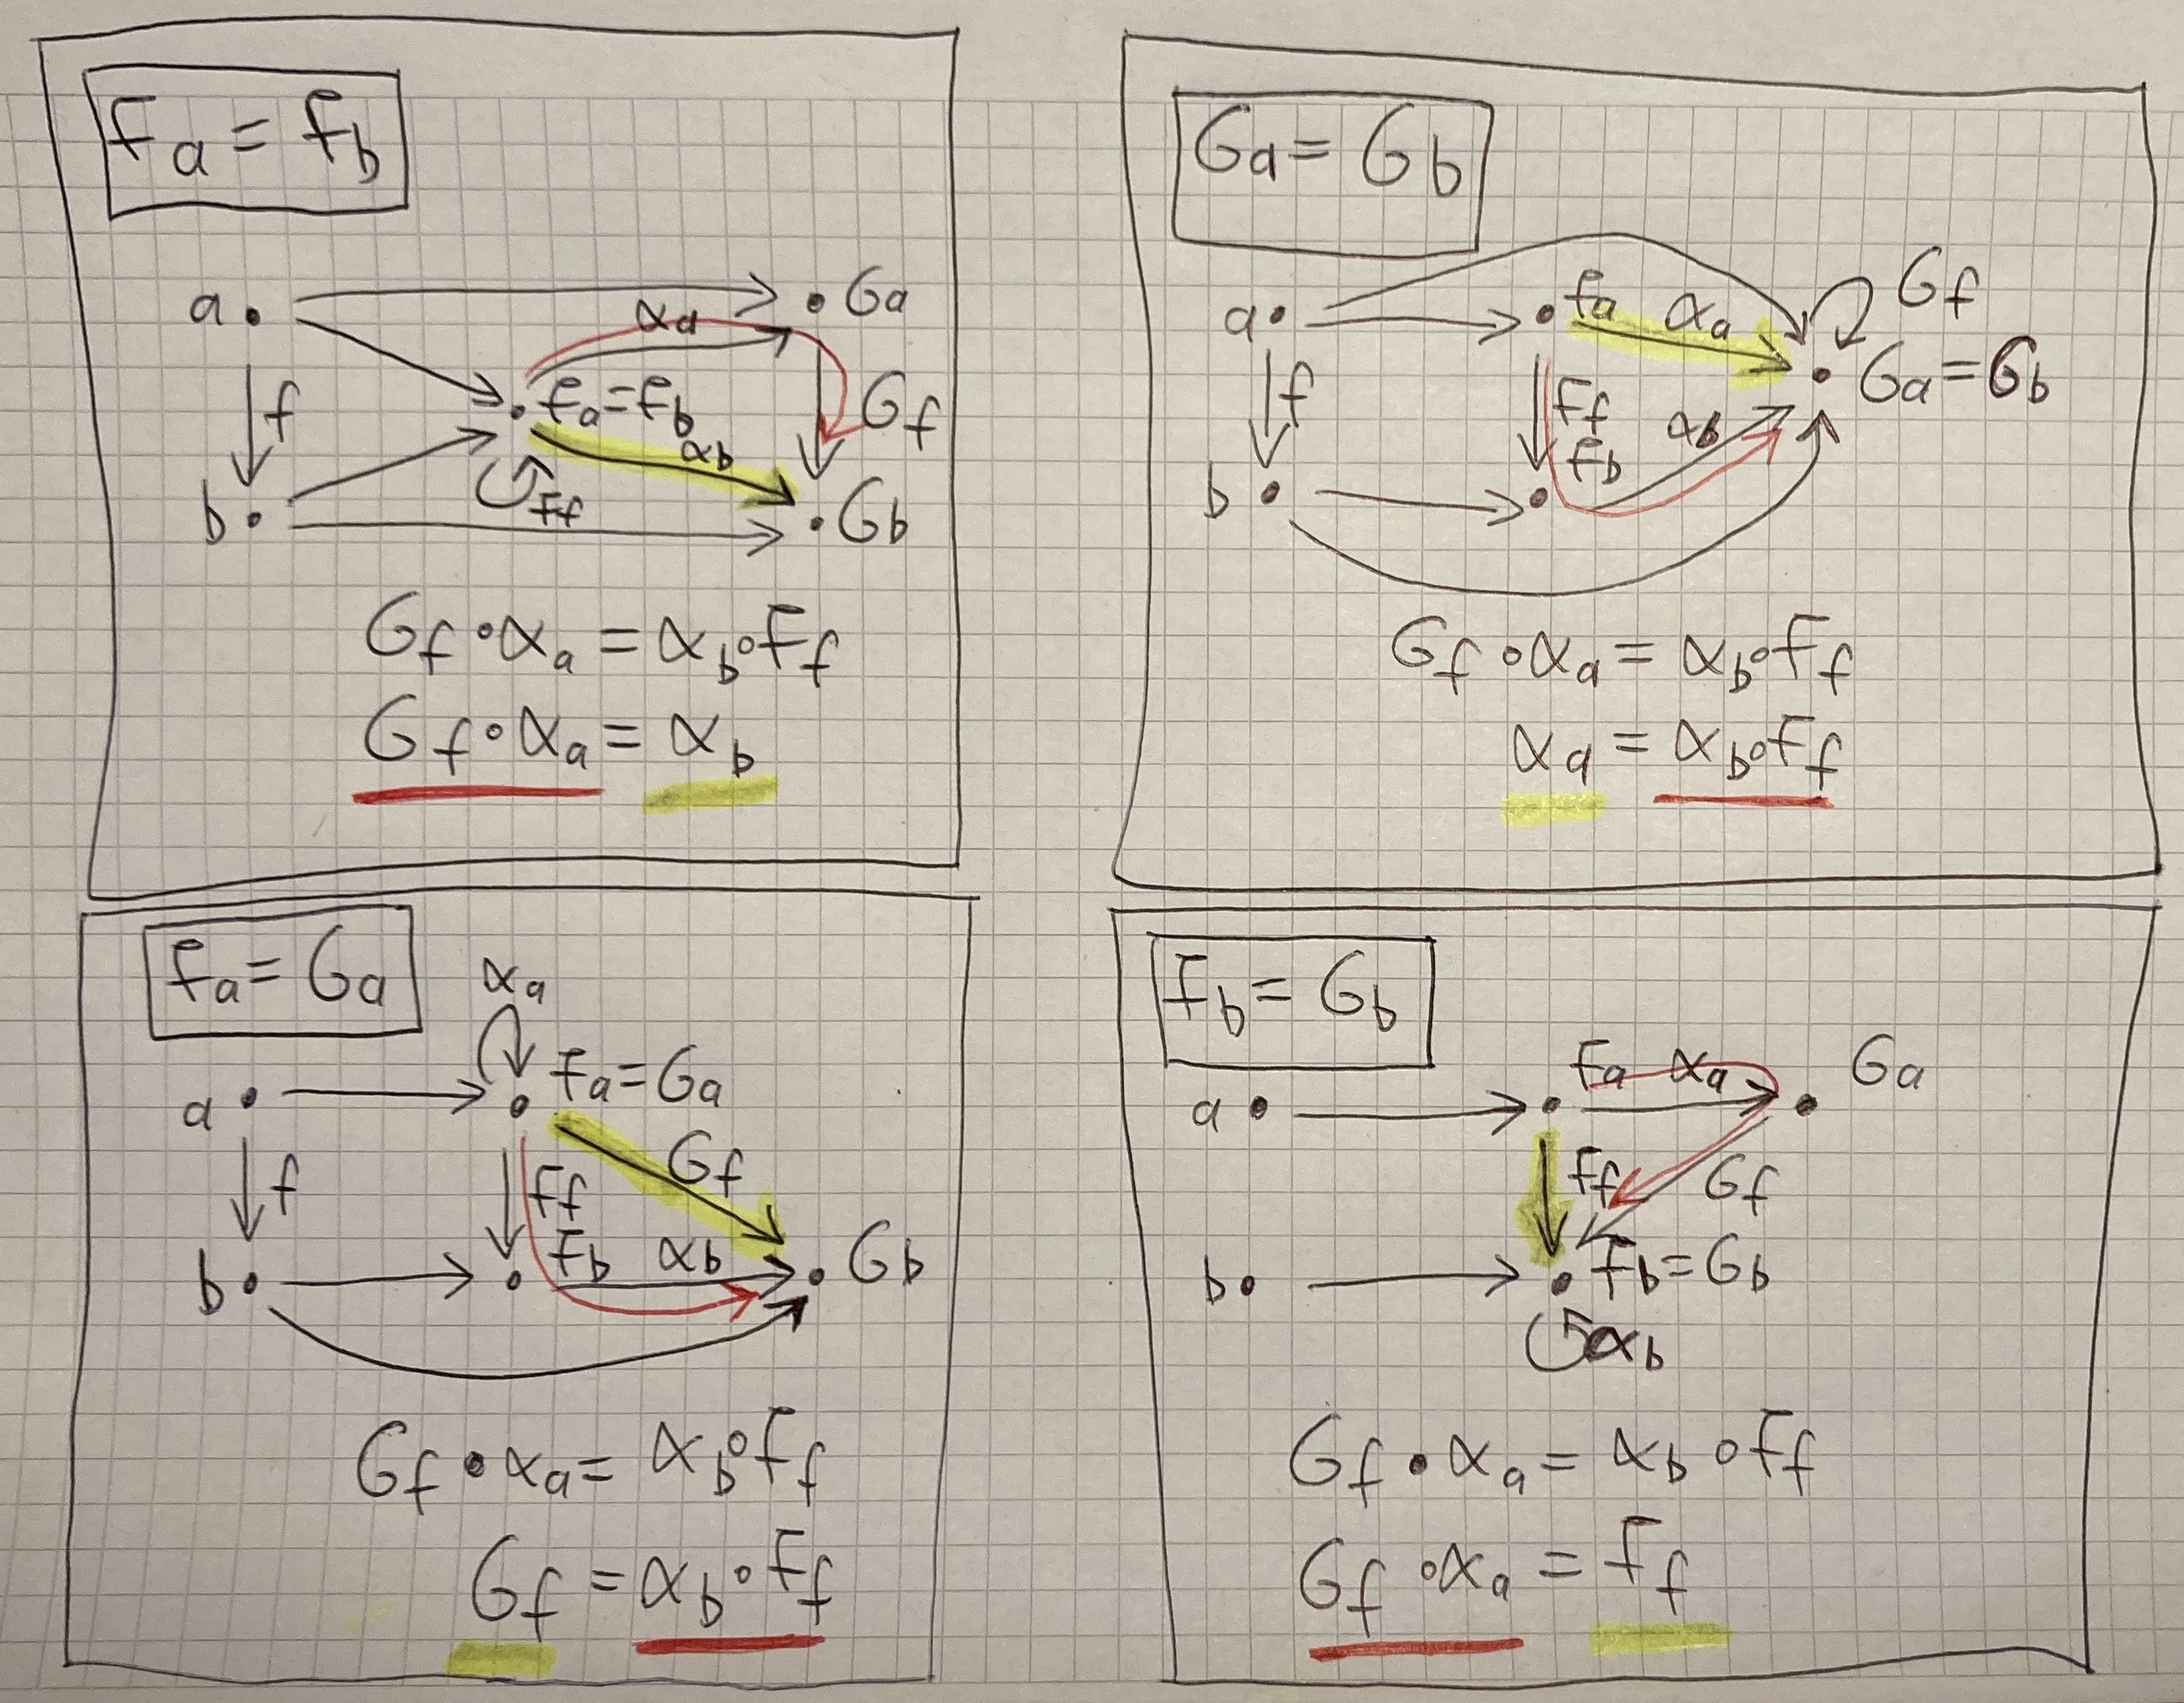 Fa = Fb
a
Ga
αa
f
Fa=Fb
Gf
αb
b
Ff
Gb
Gf∘αa = αb∘Ff
Gf∘αa = αb
Ga = Gb
Gf
a
Fa
αa
Ga=Gb
f
Ff
αb
Fb
b
Gf∘αa = αb∘Ff
αa = αb∘Ff
Fa = Ga
αa
a
Fa=Ga
f
Ff
Gf
b
Fb
αb
Gb
Gf∘αa = αb∘Ff
Gf = αb∘Ff
Fb = Gb
a
Fa
αa
Ga
Ff
Gf
b
Fb=Gb
αb
Gf∘αa = αb∘Ff
Gf∘αa = Ff